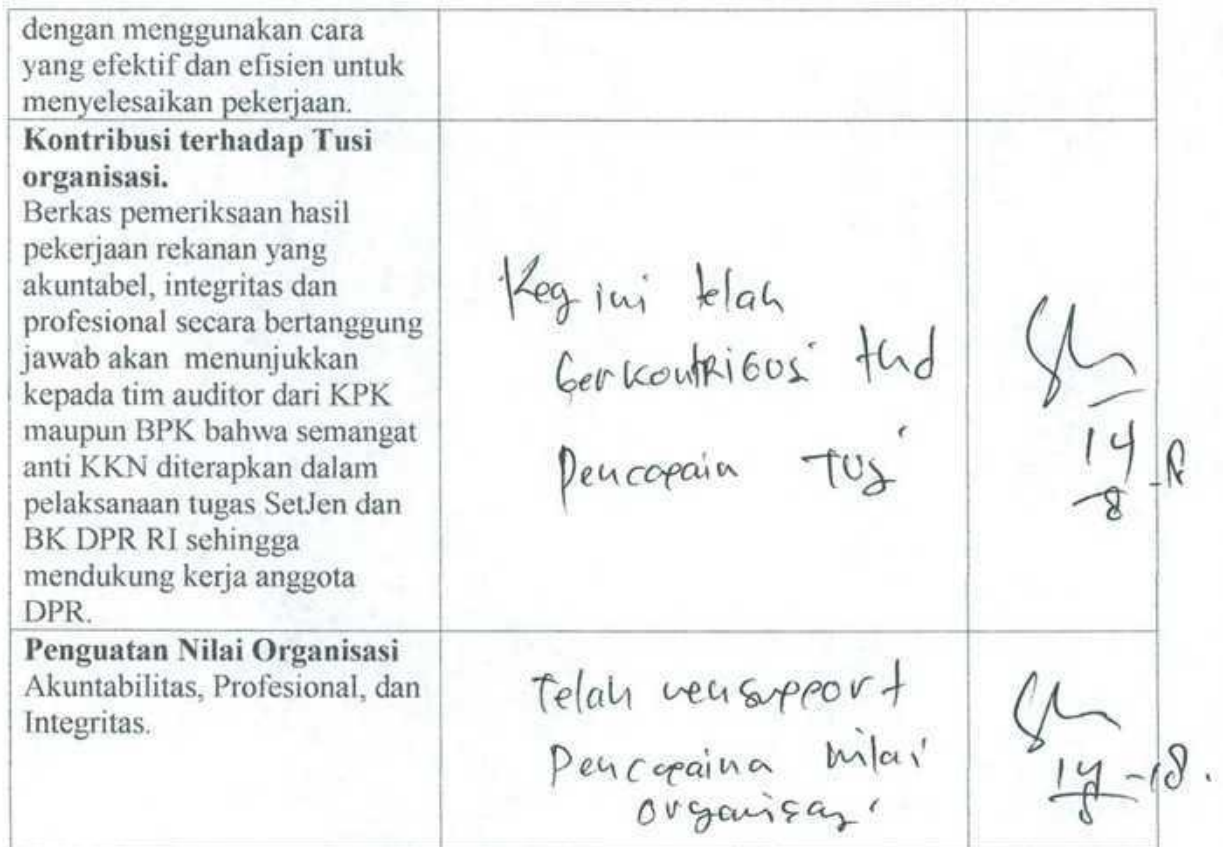 dengan menggunakan cara
yang efektif dan efisien untuk
menyelesaikan pekerjaan.
Kontribusi terhadap Tusi
organisasi.
Berkas pemeriksaan hasil
pekerjaan rekanan yang
akuntabel, integritas dan
profesional secara bertanggung
jawab akan menunjukkan
kepada tim auditor dari KPK
maupun BPK bahwa semangat
anti KKN diterapkan dalam
pelaksanaan tugas SetJen dan
BK DPR RI sehingga
mendukung kerja anggota
DPR.
Keg ini telah
berkontribusi thd
Pencapain Tusi
14
8
Penguatan Nilai Organisasi
Akuntabilitas, Profesional, dan
Integritas.
Telah mensupport
Pencapaina nilai
organisasi
14 -18.
8